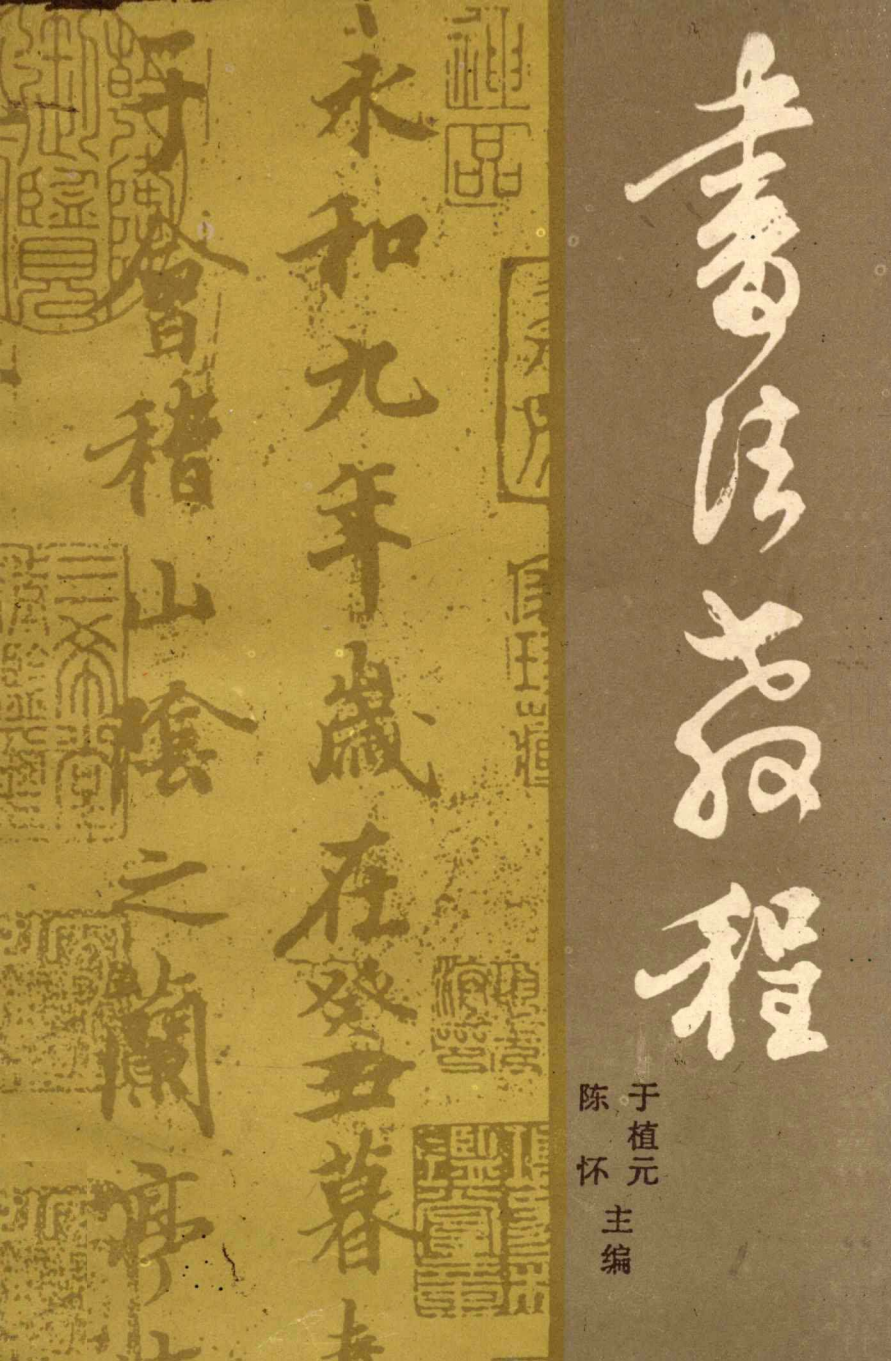 書法教程
于植元
陈怀
主编
神品
永和九年歲在癸丑暮
于會稽山陰之蘭亭
三希堂